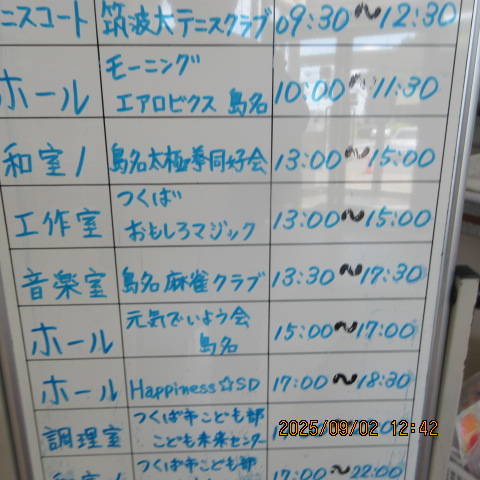 ニスコート 筑波大テニスクラブ 09:30〜12:30
ホール モーニング
エアロビクス 島名 10:00〜11:30
和室1 島名太極拳同好会 13:00〜15:00
工作室 つくば
おもしろマジック 13:00〜15:00
音楽室 島名麻雀クラブ 13:30〜17:30
ホール 元気でいよう会
島名 15:00〜17:00
ホール Happiness☆SD 17:00〜18:30
調理室 つくば市こども部
こども未来センター
2025/09/02 12:42
つくば市こども部 17:00〜22:00